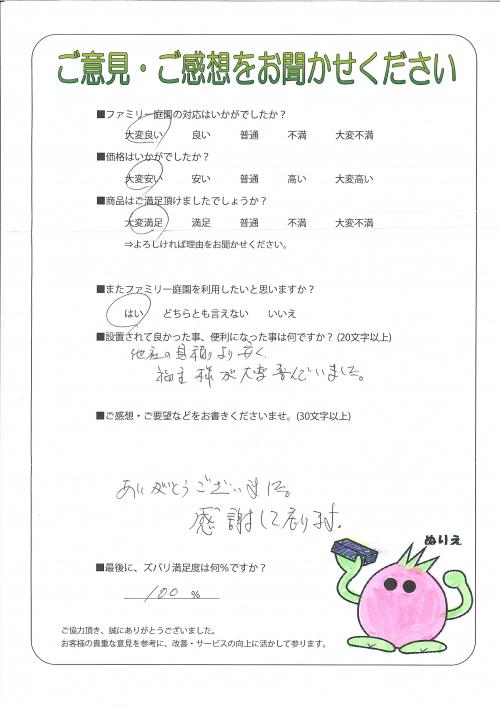 ご意見・ご感想をお聞かせください
■ファミリー庭園の対応はいかがでしたか？
大変良い 良い 普通 不満 大変不満
■価格はいかがでしたか？
大変安い 安い 普通 高い 大変高い
■商品はご満足頂けましたでしょうか？
大変満足 満足 普通 不満 大変不満
⇒よろしければ理由をお聞かせください。
■またファミリー庭園を利用したいと思いますか？
はい どちらとも言えない いいえ
■設置されて良かった事、便利になった事は何ですか？(20文字以上)
他社の見積りより安く、
施主様が大変喜んでいました。
■ご感想・ご要望などをお書きくださいませ。(30文字以上)
ありがとうございました。
感謝して居ります。
ぬりえ
■最後に、ズバリ満足度は何％ですか？
100 %
ご協力頂き、誠にありがとうございました。
お客様の貴重な意見を参考に、改善・サービスの向上に活かして参ります。